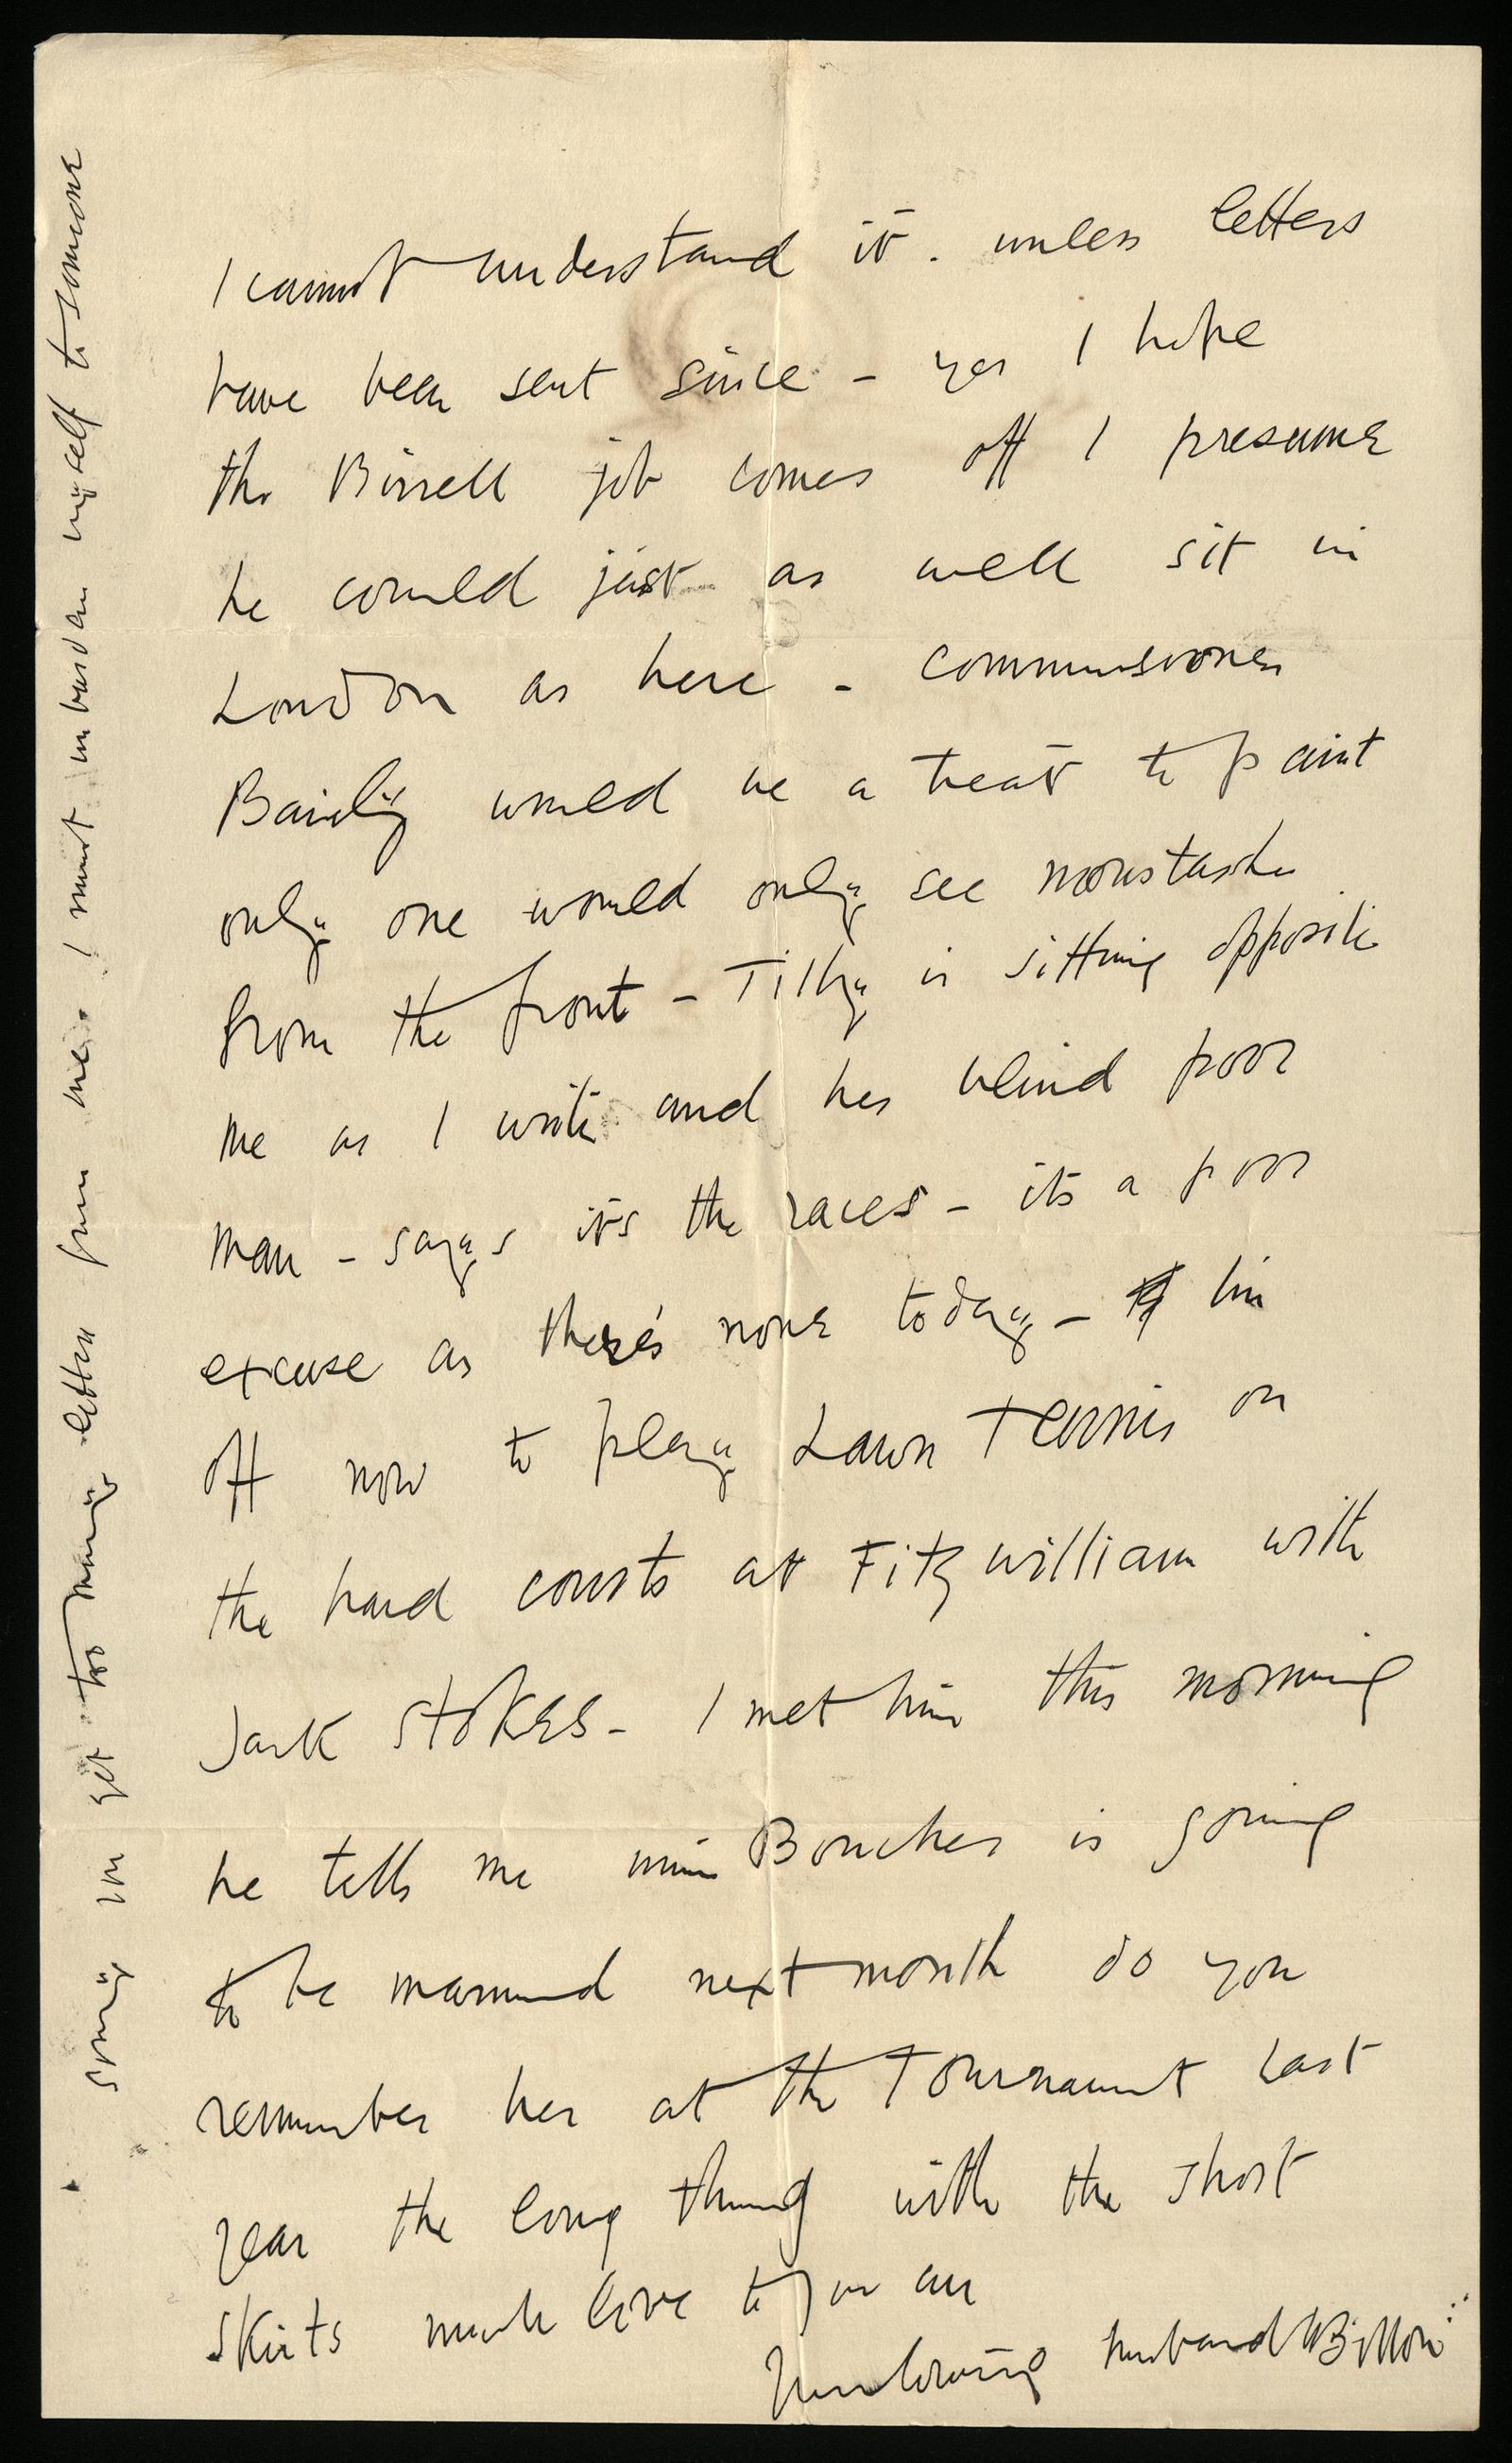 I cannot understand it. unless letters
have been sent since - yes I hope
the Birrell job comes off I presume
he could just as well sit in
London as here - commissioner
Bailey would be a treat to paint
only one would only see moustache
from the front - Tilly is sitting opposite
me as I write and hes blind poor
man - says its the races - its a poor
excuse as there's none today - Im
off now to play Lawn Tennis on
the hard courts at Fitzwilliam with
Jack Stokes - I met him this morning
he tells me miss Boucher is going
to be married next month do you
remember her at the Tournament last
year the long thing with the short
skirts much love to you all
Your loving husband "Billon"
Sorry you get too many letters from me. I must unburden myself to someone